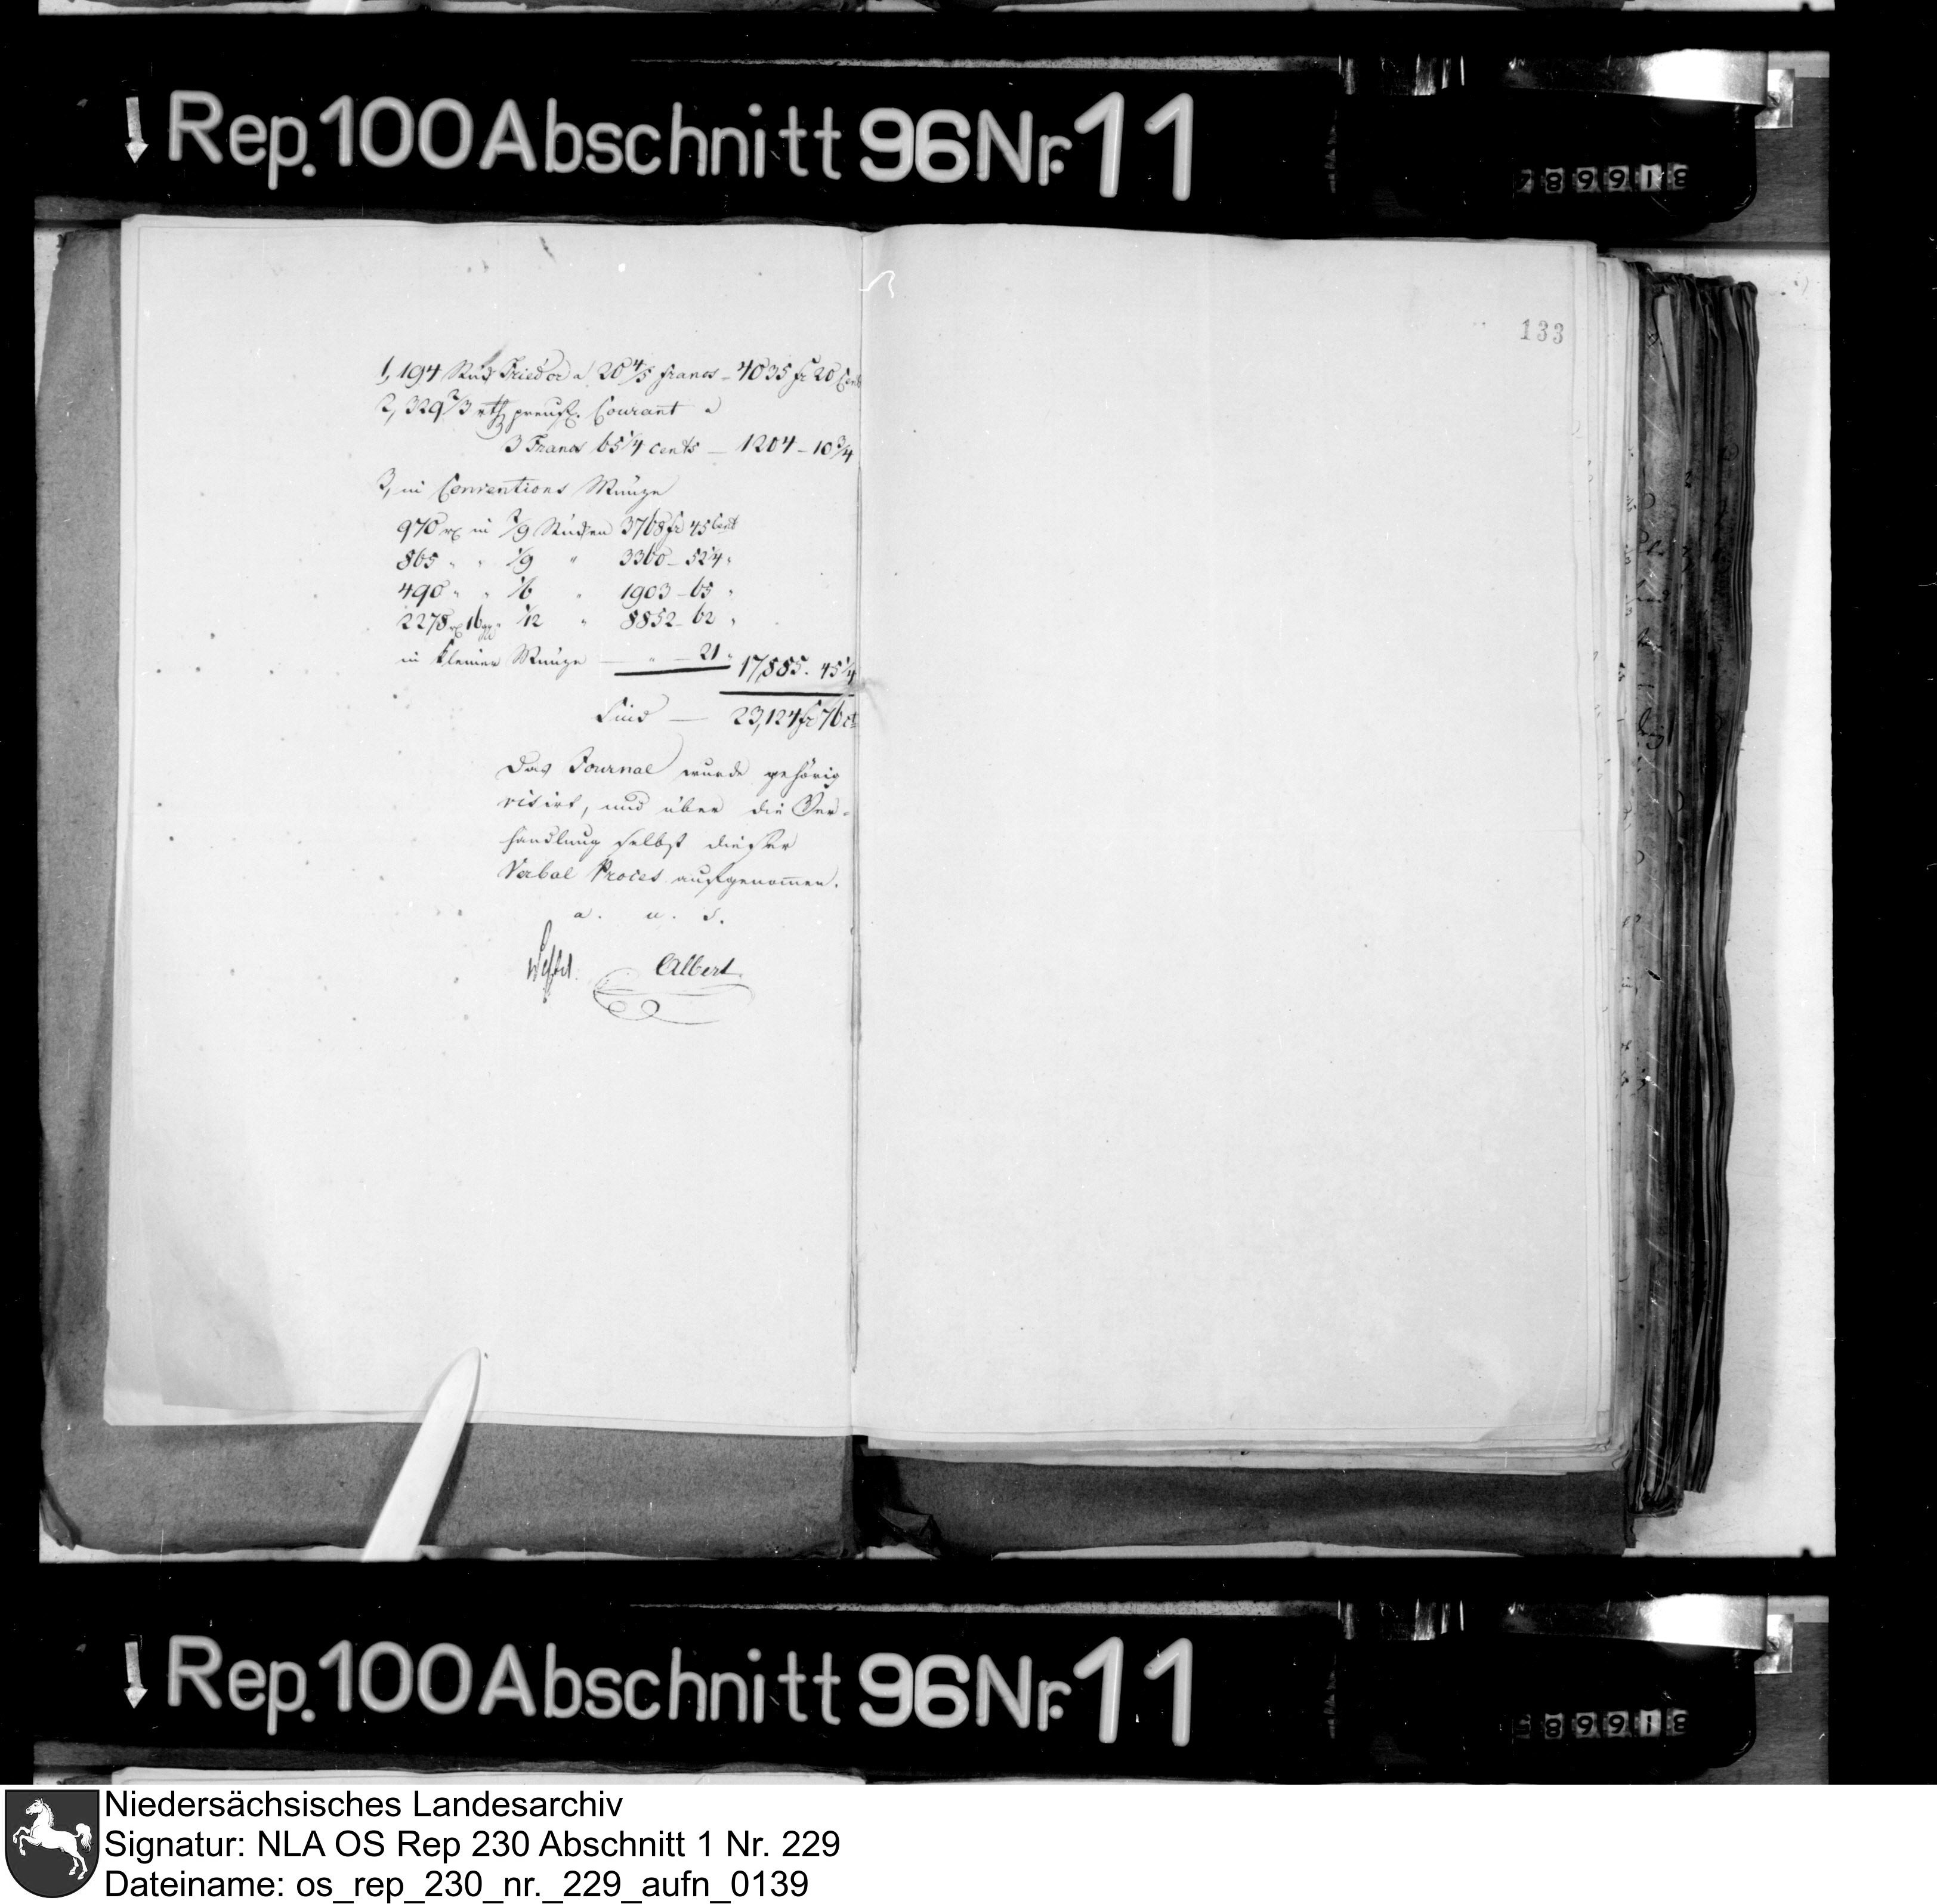 Rep. 100 Abschnitt 96 Nr. 11
133
1, 194 Stück Fried'or a 20 4/5 francs - 4035 fr 20 Cent
2, 329 2/3 rthl preuß. Courant a
3 Francs 65 1/4 cents — 1204 - 10 3/4
3, in Conventions Münze
970 rl in 2/3 Stücken 3768 fr 45 Cent
865 " " 1/3 " 3360 - 52 1/4 "
490 " " 1/6 " 1903 - 65 "
2278 rl 16 ggr " 1/12 " 8852 - 62 "
in kleiner Münze — " — 21 " 17,885. 45 1/4
Sind — 23,124 fr 76 ct
Das Journal wurde gehörig
visirt, und über die Ver-
handlung selbst dieser
Verbal Proces aufgenommen.
a. u. s.
Albert.
Rep. 100 Abschnitt 96 Nr. 11
Niedersächsisches Landesarchiv
Signatur: NLA OS Rep 230 Abschnitt 1 Nr. 229
Dateiname: os_rep_230_nr._229_aufn_0139